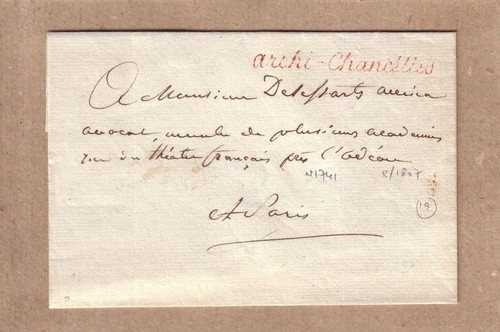 archi-Chancellier
A Monsieur Delessarts ancien
avocat, membre de plusieurs académies
rue du théatre français près l'odéon
N1741 2/1807
19
A Paris